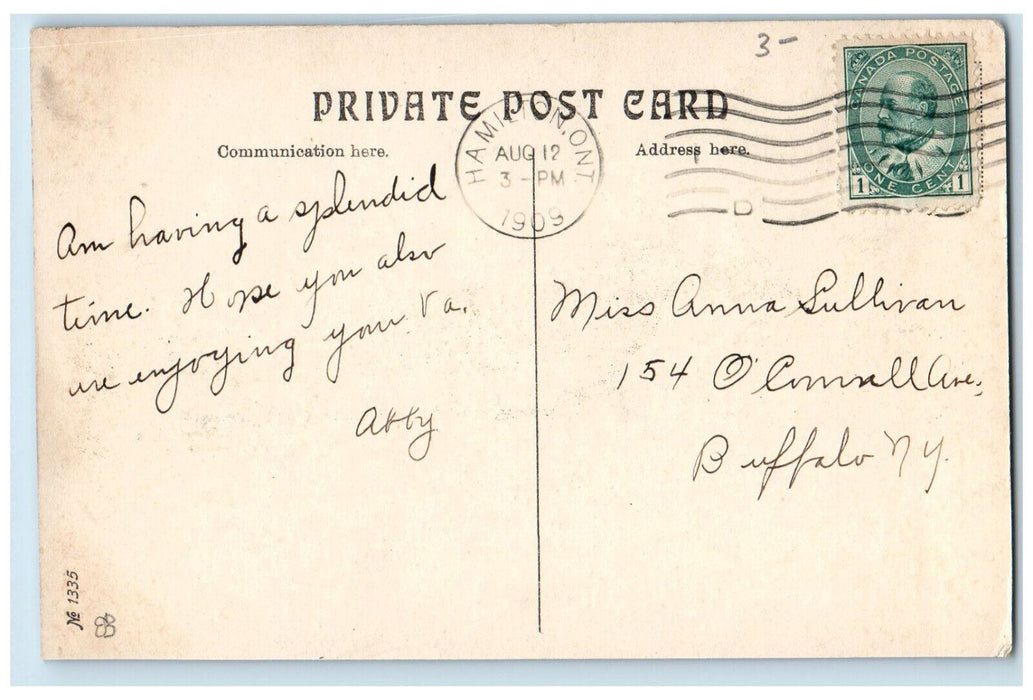 3-
PRIVATE POST CARD
Communication here.
Address here.
HAMILTON, ONT
AUG 12
3 - PM
1909
D
CANADA POSTAGE
ONE CENT
1 1
Am having a splendid
time. Hope you also
are enjoying your Va.
Abby
Miss Anna Sullivan
154 O'Connell Ave.
Buffalo N Y.
№ 1335